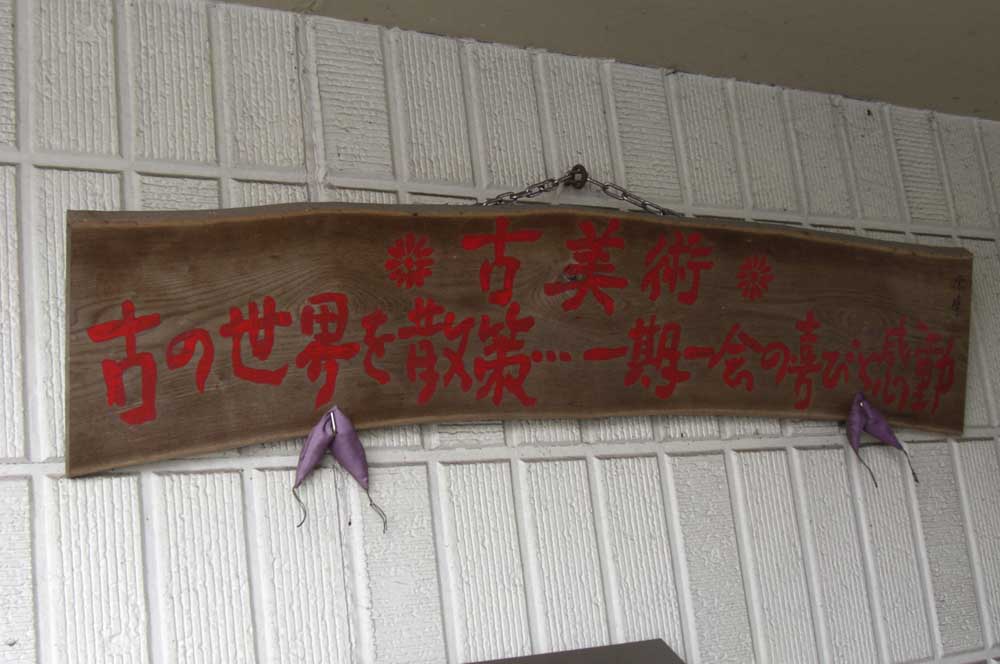 古美術
古の世界を散策…一期一会の喜びと感動